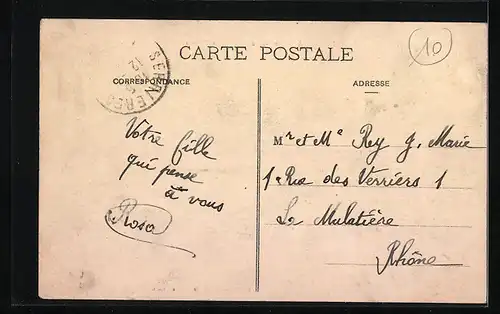 CARTE POSTALE
10
CORRESPONDANCE
ADRESSE
Votre fille
qui pense
à vous
Rosa
Mr et Me Rey J. Marie
1 Rue des Verriers 1
La Mulatière
Rhône